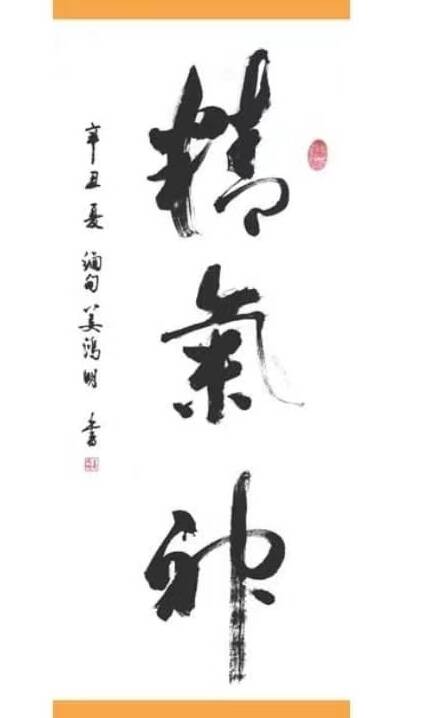 精氣神
辛丑夏 緬甸 姜鴻明 書